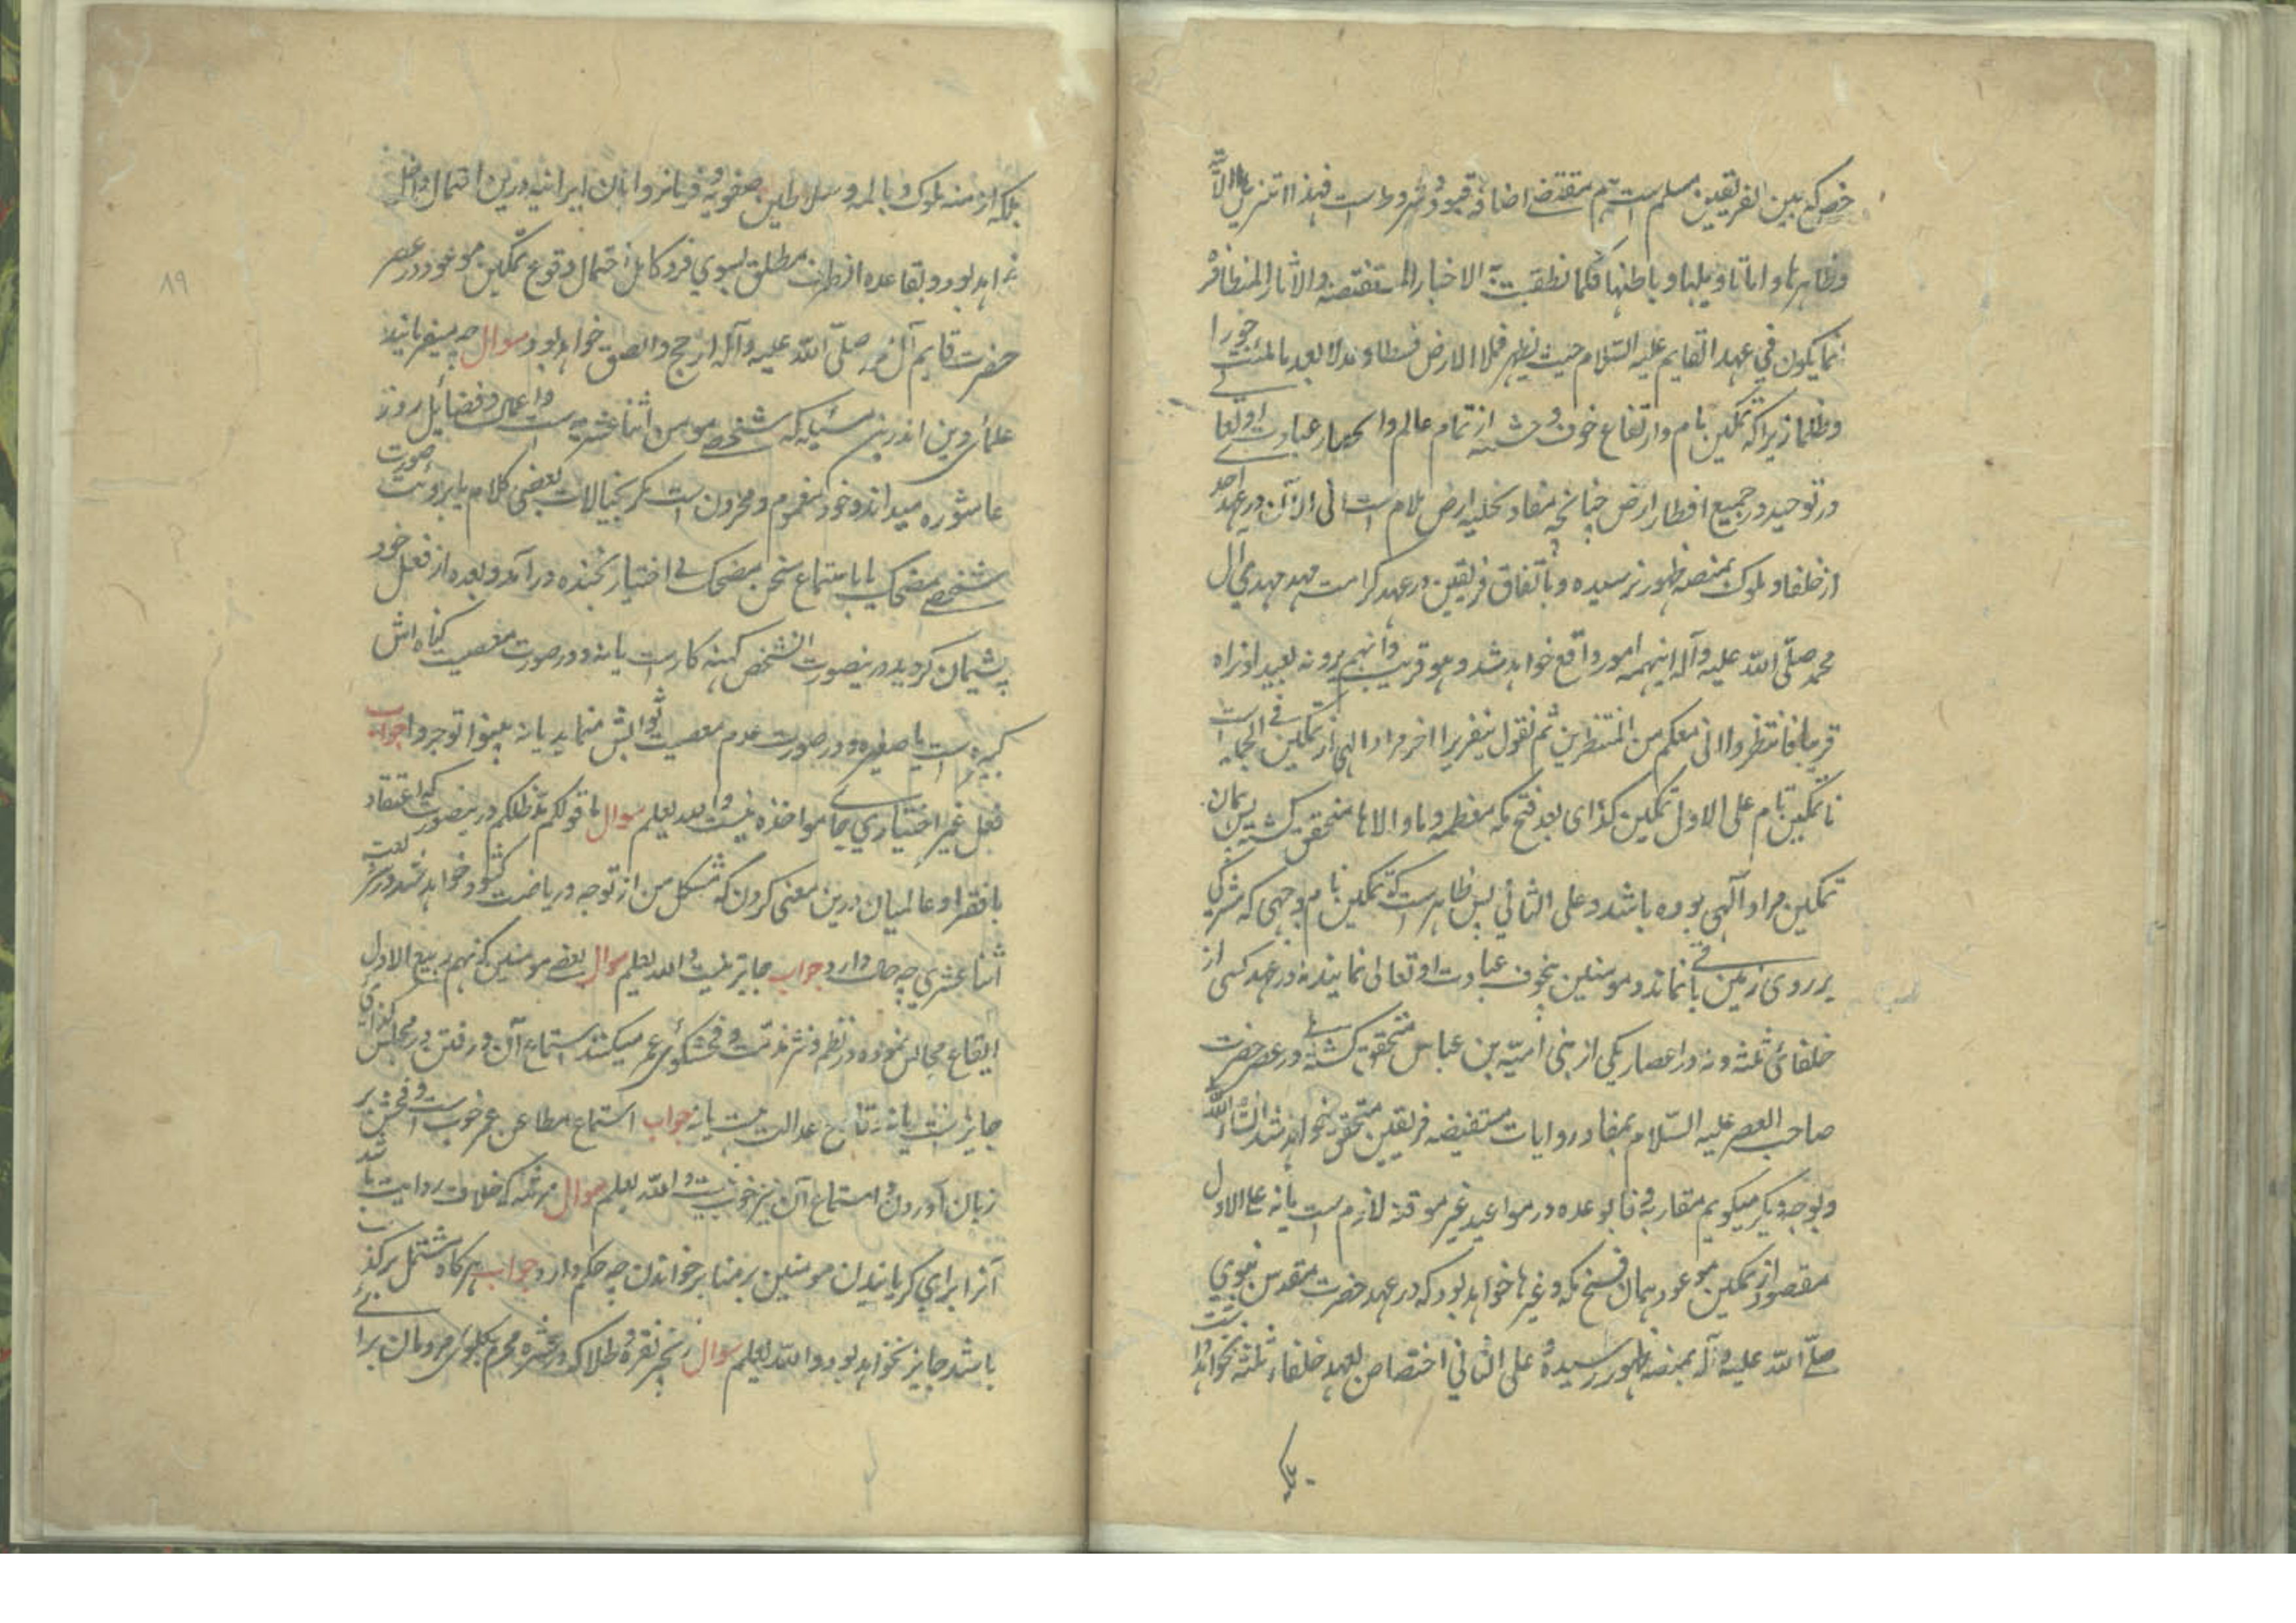 که بین الفریقین مسلم است هم مقتضی اضافه قیود و شروط است فهذا تنزیل الآیة
وظاهرها و اما تاویلها و باطنها فکما نطقت به الاخبار المستفیضه والاثار المتظافره
انما یکون فی عهد القایم علیه السلام حیث یظهر فیملا الارض قسطا و عدلا بعد ما ملئت جورا
وظلما زیرا که تمکین تام و ارتفاع خوف و خشیه از تمام عالم و انحصار عبادت او تعالی
در توحید در جمیع اقطار ارض چنانچه مفاد تحلیه ارض بلام است الی الآن در عهد احدی
از خلفا و ملوک بمنصه ظهور نرسیده و باتفاق فریقین در عهد کرامت مهد مهدی آل
محمد صلی الله علیه وآله اینهمه امور واقع خواهد شد و هو قریب وانهم یرونه بعیدا و نراه
قریبا فانتظروا انی معکم من المنتظرین ثم نقول بتقریر اخر مراد الهی از تمکین فی الجمله است
یا تمکین تام علی الاول تمکین کذائی بعد فتح مکه معظمه و ما والاها متحقق گشته پس همان
تمکین مراد آلهی بوده باشد و علی الثانی پس ظاهر است که تمکین تام بوجهی که مشرکی
بر روی زمین باقی نماند و مومنین بیخوف عبادت او تعالی نمایند نه در عهد کسی از
خلفائ ثلثه و نه در اعصار یکی از بنی امیه بنی عباس متحقق گشته و در عصر حضرت
صاحب العصر علیه السلام بمفاد روایات مستفیضه فریقین متحقق خواهد شد انشاء الله
و بوجه دیگر میگویم مقاربه وفا بوعده در مواعید غیر موقته لازم است یا نه علی الاول
مقصود از تمکین موعود همان فتح مکه و غیرها خواهد بود که در عهد حضرت مقدس نبوی
صلی الله علیه وآله بمنصه ظهور رسیده و علی الثانی اختصاص بعهد خلفاء ثلثه نخواهد داشت
بلکه
بلکه ازمنه ملوک دیالمه و سلاطین صفویه و فرمانروایان ایرانیه درین احتمال داخل
خواهد بود و بقاعده انصراف مطلق بسوی فرد کامل احتمال وقوع تمکین موعود در عصر
حضرت قایم آل محمد صلی الله علیه وآله ارجح والصق خواهد بود سوال چه میفرمایند
علمای دین اندرین مسئله که شخصی مومن اثنا عشریه است و اعمال و فضایل روز
عاشوره میداند و خود مغموم و محزون است مگر بخیالات بعضی کلام یا برویت صورت
شخصی مضحک یا باستماع سخن مضحک بی اختیار بخنده درآمد و بعده از فعل خود
پشیمان گردید درینصورت انشخص گنهکار است یا نه و در صورت معصیت گناه اش
کبیره است یا صغیره و در صورت عدم معصیت ثوابش مینماید یا نه بینوا توجروا جواب
فعل غیر اختیاری جای مواخذه نیست والله یعلم سوال ما قولکم مد ظلکم درینصورت که اعتقاد
با فقرا و عالمیان درین معنی کردن که مشکل من از توجه و ریاضت کشود خواهد شد در شریعت
اثنا عشری چه حال دارد جواب جایز نیست والله یعلم سوال بعضی مومنین که نهم ربیع الاول
ایقاع مجالس نموده در نظم و نثر مذمت و فحشگوی عمر میکنند استماع آن و رفتن در مجلس کذائی
جایز است یا نه قادح عدالت است یا نه جواب استماع مطاعن عمر خوب است و فحش بر
زبان آوردن و استماع آن نیز خوب نیست والله یعلم سوال مرثیه که خلاف روایت باشد
آنرا برای گریانیدن مومنین بر منابر خواندن چه حکم دارد جواب هرگاه مشتمل بر کذب
باشد جایز نخواهد بود والله یعلم سوال زنجیر نقره و طلا که در عشره محرم بگلوی مردمان برائے
۸۹